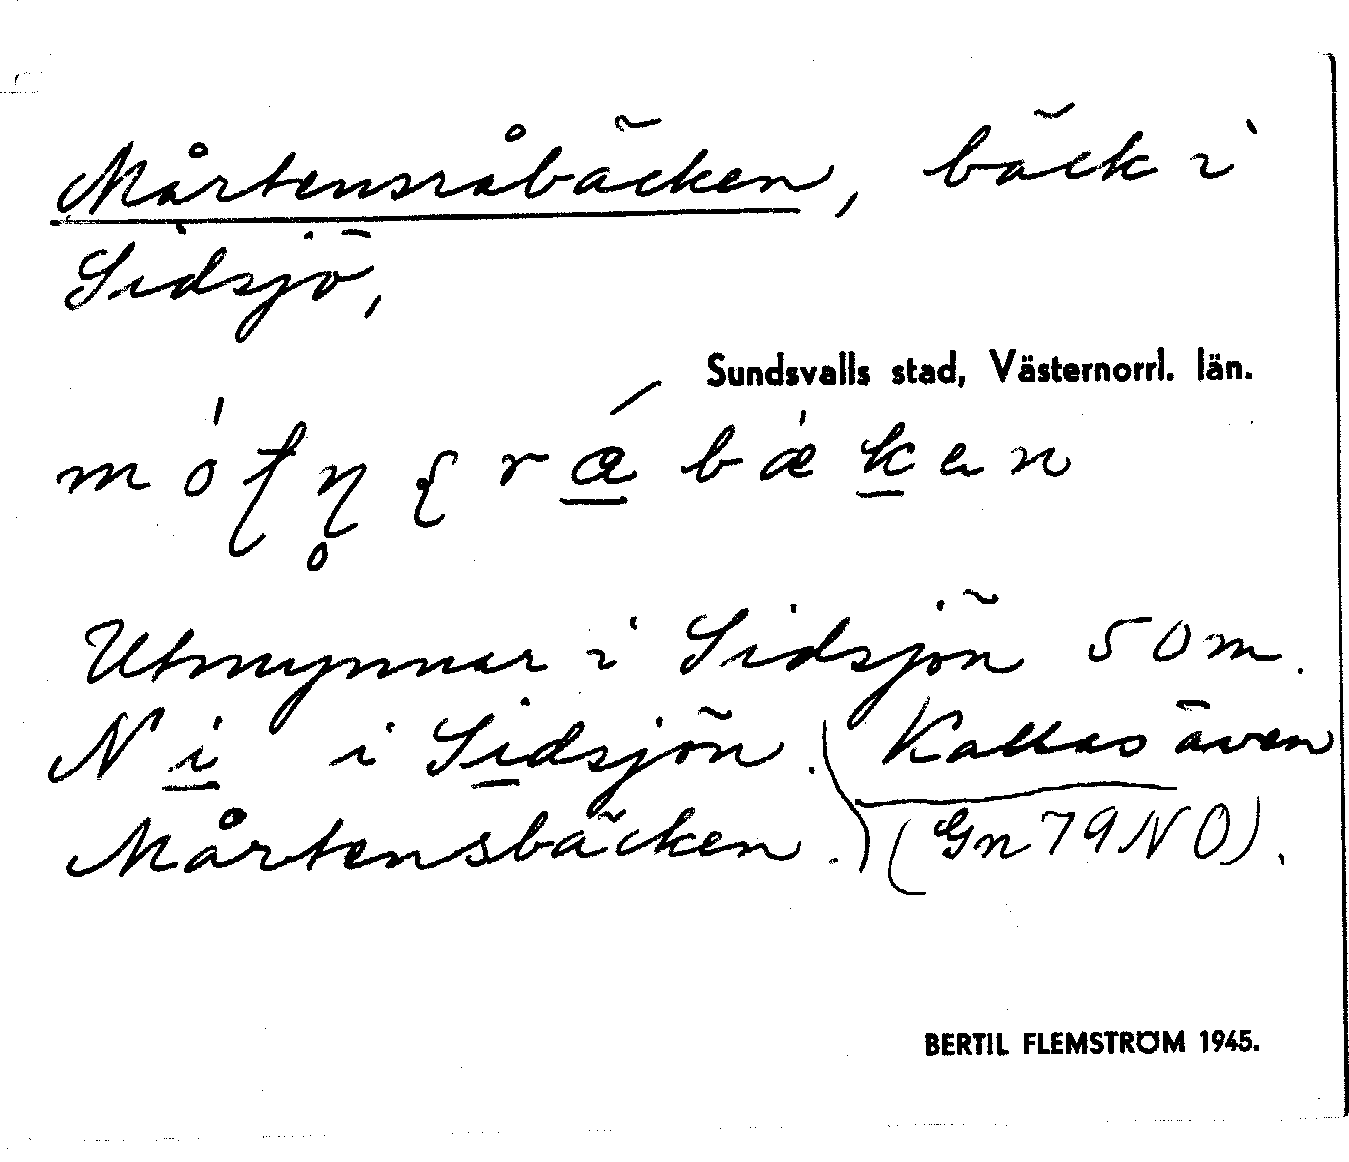 Mårtensråbäcken, bäck i
Sidsjö,
Sundsvalls stad, Västernorrl. län.
Utmynnar i Sidsjön 50 m.
N i i Sidsjön. Kallas även
Mårtensbäcken. (Gn 79 NO).
BERTIL FLEMSTRÖM 1945.